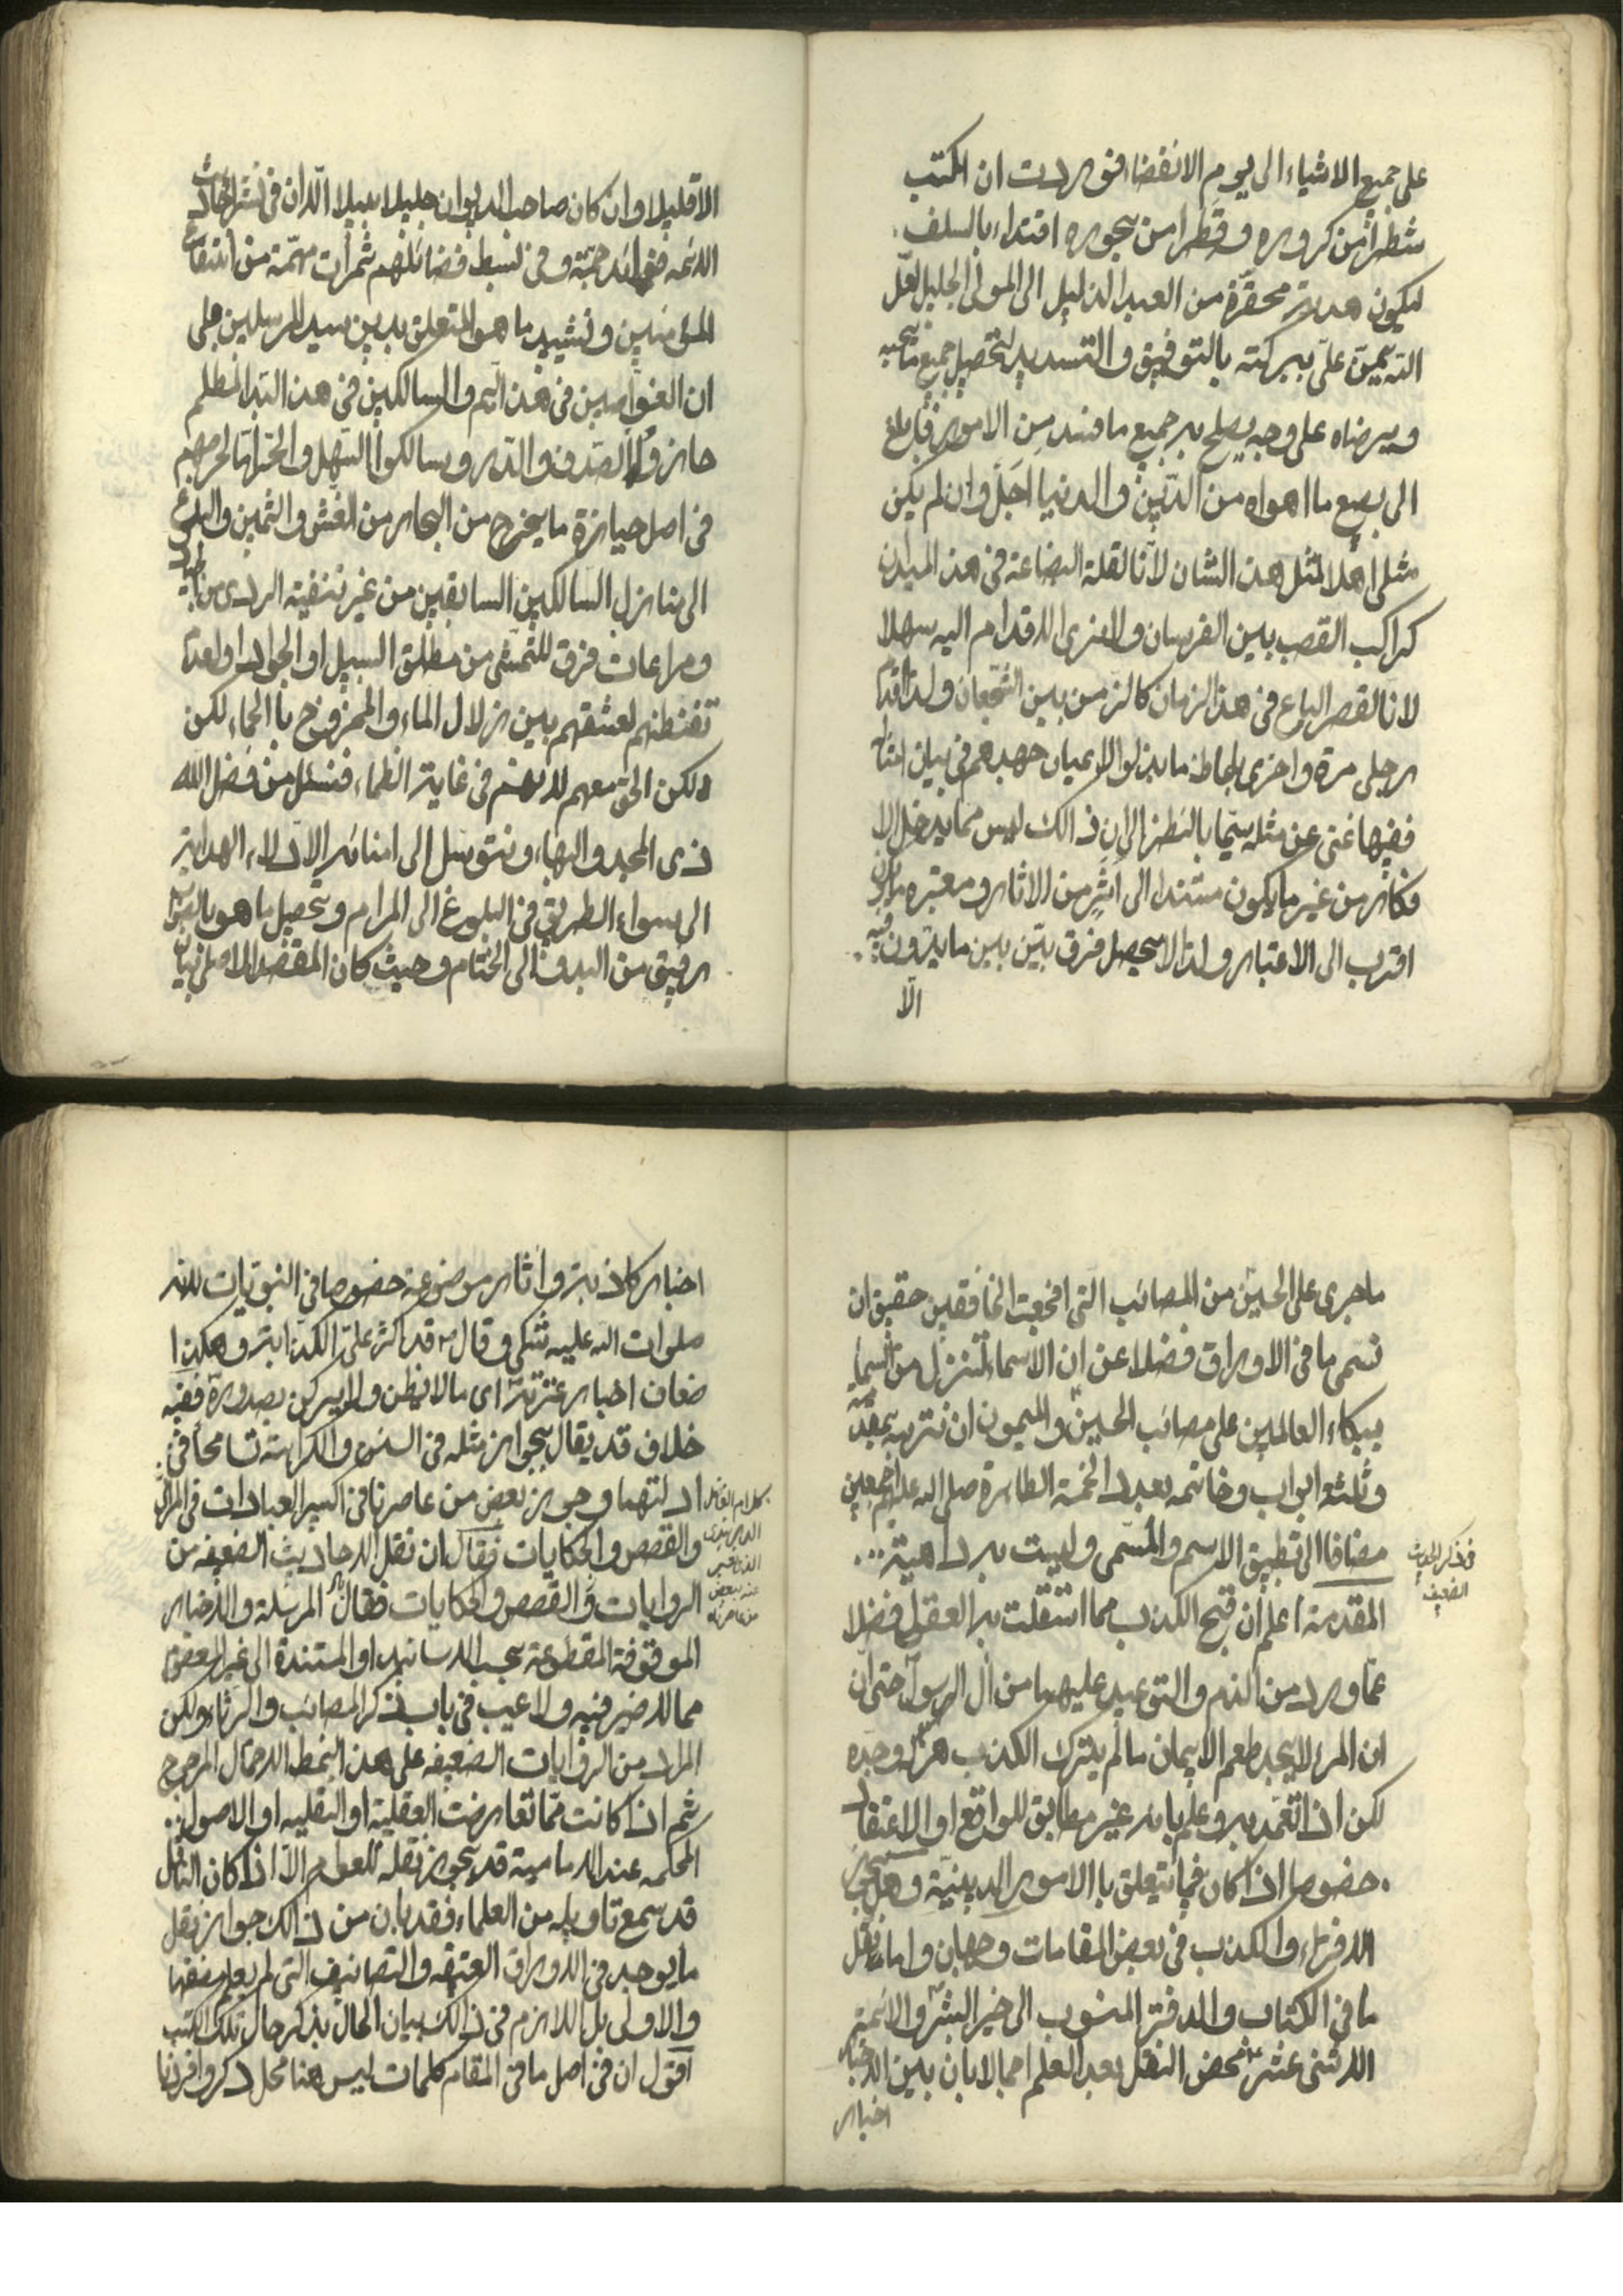 على جميع الاشياء الى يوم الانقضاء فوردت ان اكتب
شطرا من كروره وقطرا من بحوره اقتداء بالسلف
ليكون هدية محقرة من العبد الذليل الى المولى الجليل لعل
الله يمن على ببركته بالتوفيق والتسديد لتحصيل جميع ما يحبه
ويرضاه على وجه يصلح به جميع ما فسد من الامور فابلغ
الى بضع ما اهواه من الدين والدنيا اجل وان لم يكن
مثلى اهلا لمثل هذا الشان لانا لقلة البضاعة فى هذا الميدان
كراكب القصب بين الفرسان ولا نرى الاقدام اليه سهلا
لانا لقصر الباع فى هذا الزمان كالزمن بين الشجعان ولذا اقدم
رجلى مرة واخرى بلحاظ ما بذلوا الاعيان جهدهم فى بيان
ففيها غنى عن مثله سيما بالنظر الى ان ذالك ليس مما يدخل الا
فكانه من غير ما يكون مستندا الى اثر من الاثار ومعتبره
اقترب الى الاعتبار ولذا لا يحصل فرق بين بين ما يدون فيه
الا
الا قليلا وان كان صاحب الديوان جليلا نبيلا الا ان فى نشر احاديث
الائمه فوائد جمة وفى بسط فضائلهم ثمرات مهمة من انتفاع
المؤمنين وتشييد ما هو المتعلق بدين سيد المرسلين على
ان الغواصين فى هذا اليم والسالكين فى هذا البلد المظلم
حازوا الصدف والدر وسالكوا السهل والحزن لحرصهم
فى اصل حيازة ما يخرج من البحار من الغش والثمين والبلوغ
الى منازل السالكين السابقين من غير تنقية الردى من الجيد
ومراعات فرق للتمشى من مطلق السبيل او الجواد او لعدم
تفطنهم لعشقهم بين زلال الماء والممزوج بالحماء لكن
ولكن الحق معهم لانهم فى غاية الظماء فنسئل من فضل الله
ذى المجد والبهاء ونتوسل الى امنائه الادلاء الهداية
الى سواء الطريق فى البلوغ الى المرام وتحصيل ما هو بالقبول
رفيق من البدو الى الختام وحيث كان المقصد الاصلى بيان
ما جرى على الحسين من المصائب التى افجعت الخافقين حقيق ان
نسمى ما فى الاوراق فضلا عن ان الاسماء تنزل من السماء
ببكاء العالمين على مصائب الحسين والميمون ان نرتبه بمقدمة
وثلثه ابواب وخاتمه بعدد الخمسة الطاهرة صلى الله عليهم اجمعين
مضافا الى تطبيق الاسم والمسمى وليست بداهية
فى ذكر الحديث
الضعيف
المقدمة اعلم ان قبح الكذب مما استقلت به العقول فضلا
عما ورد من الذم والتوعيد عليهما من ال الرسول حتى ان
ان المرء لا يجد طعم الايمان ما لم يترك الكذب هزله وجده
لكن اذا تعمد به وعلم بانه غير مطابق للواقع او الاعتقاد
خصوصا اذا كان فيما يتعلق باالامور الدينية وهل يجوز
الافتراء والكذب فى بعض المقامات وجهان واما نقل
ما فى الكتاب والدفتر المنسوب الى خير البشر والائمة
الاثنى عشر محض النقل بعد العلم اجمالا بان بين الاخبار
اخبار
اخبار كاذبة واثار موضوعة خصوصا فى النبويات لانه
صلوات الله عليه شكى وقال قد كثر على الكذابة وهكذا
ضعاف اخبار عترته اى ما لا يظن ولا يركن بصدوره ففيه
خلاف قد يقال بجواز مثله فى السنن والكراهة تسامحا فى
ادلتهما وجوز بعض من عاصرنا فى اكسير العبادات فى المراثى
والقصص والحكايات فقال ان نقل الاحاديث الضعيفه من
كلام الفاضل
الدربندى
عنه بعض
من عاصرناه
الروايات والقصص والحكايات فقال المرسلة والاخبار
الموقوفة المقطوعة بحسب الاسانيد او المستندة الى غير المعصوم
مما لا ضير فيه ولا عيب فى باب ذكر المصائب والرثاء ولكن
المراد من الروايات الضعيفه على هذا النمط الاحتمال المرجوح
ثم اذا كانت مما تعارضت العقلية او النقليه او الاصول
المحكمه عند الامامية قد يجوز نقله للعوام الا اذا كان الناقل
قد سمع تاويله من العلماء فقد بان من ذالك جواز نقل
ما يوجد فى الاوراق العتيقه والتصانيف التى لم يعلم مصنفها
والاولى بل اللازم فى ذالك بيان الحال بذكر حال تلك الكتب
اقول ان فى اصل ما فى المقام كلمات ليس هنا محل ذكر وافردنا